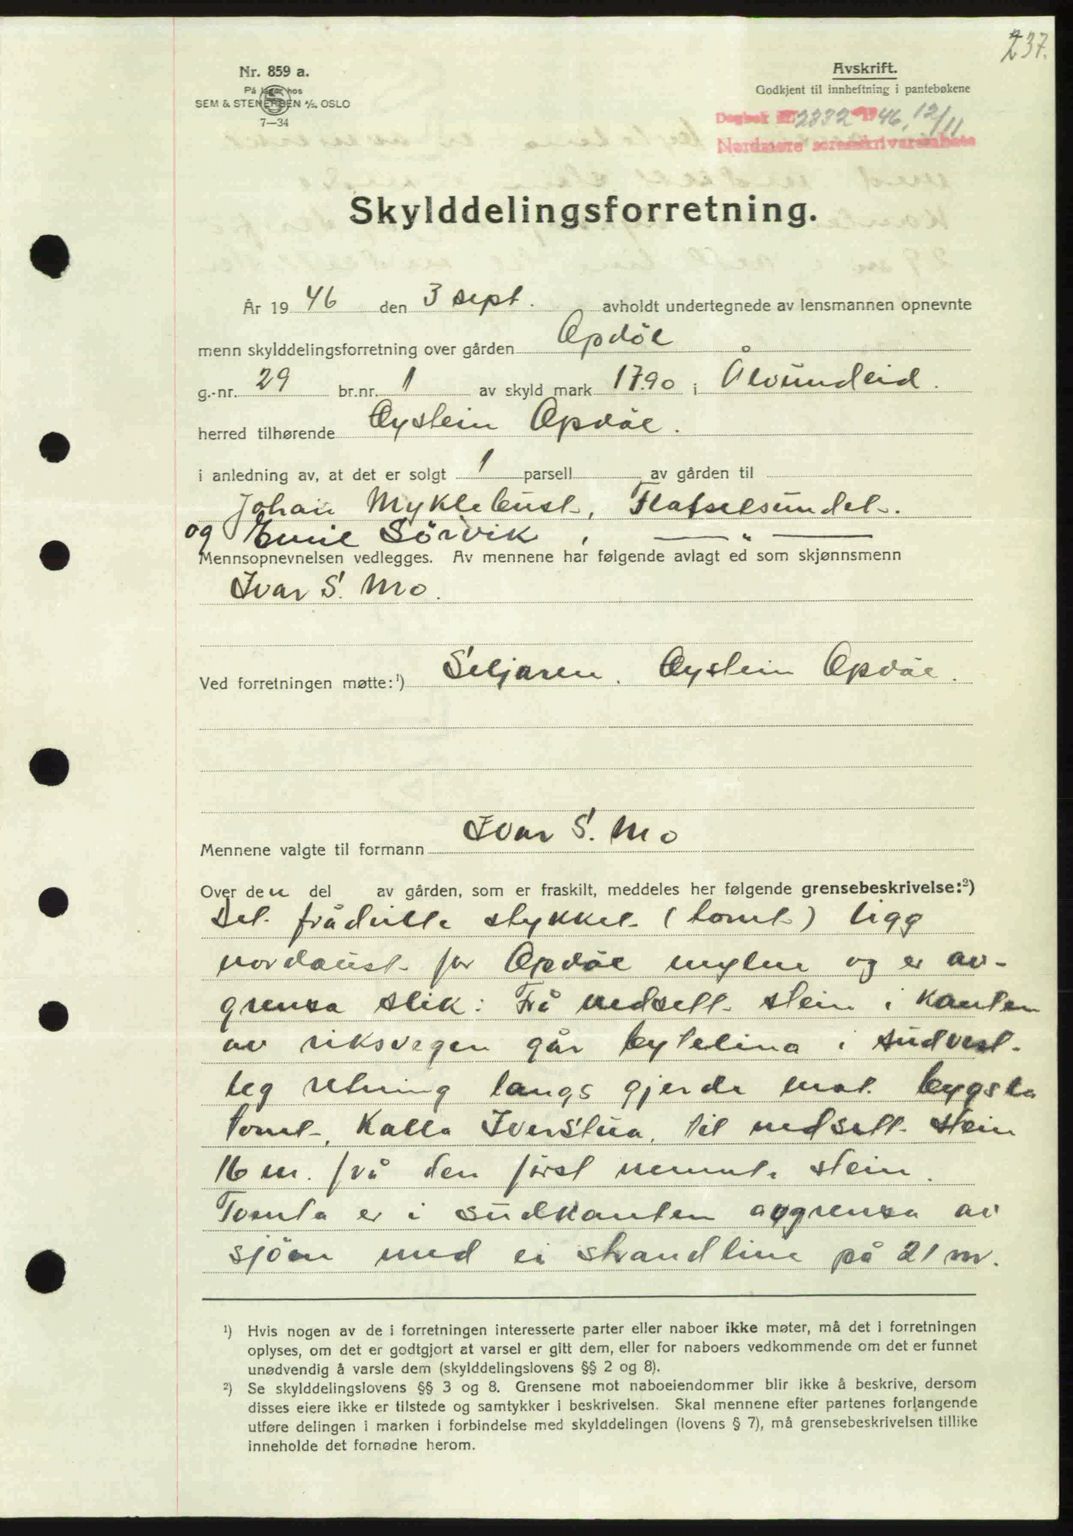 237.
Nr. 859 a.
På lager hos
SEM & STENERSEN A/S, OSLO
7—34
Avskrift.
Godkjent til innheftning i pantebøkene
Dagbok nr. 2332 19 46, 12/11
Nordmøre sorenskriverembete
Skylddelingsforretning.
År 19 46 den 3 sept. avholdt undertegnede av lensmannen opnevnte
menn skylddelingsforretning over gården Opdøl
g.-nr. 29 br.nr. 1 av skyld mark 17.90 i Ålvundeid.
herred tilhørende Øystein Opdøl.
i anledning av, at det er solgt 1 parsell av gården til
Johan Myklebust, Flatsetsundet.
og Emil Sörvik, — „ —
Mennsopnevnelsen vedlegges. Av mennene har følgende avlagt ed som skjønnsmenn
Ivar S. Mo.
Ved forretningen møtte:¹) Seljaren. Øystein Opdøl.
Mennene valgte til formann Ivar S. Mo
Over den del av gården, som er fraskilt, meddeles her følgende grensebeskrivelse:²)
Det fråskilte stykket (tomt) ligg
nordaust for Opdøl mylne og er av-
grensa slik: Frå nedsett stein i kanten
av riksvegen går bytelina i südvest-
leg retning langs gjerde mot bygsla
tomt, kalla Iverstua, til nedsett stein
16 m. frå den först nemnte stein.
Tomta er i südkanten avgrensa av
sjöen med ei strandline på 21 m.
¹) Hvis nogen av de i forretningen interesserte parter eller naboer ikke møter, må det i forretningen
oplyses, om det er godtgjort at varsel er gitt dem, eller for naboers vedkommende om det er funnet
unødvendig å varsle dem (skylddelingslovens §§ 2 og 8).
²) Se skylddelingslovens §§ 3 og 8. Grensene mot naboeiendommer blir ikke å beskrive, dersom
disses eiere ikke er tilstede og samtykker i beskrivelsen. Skal mennene efter partenes forlangende
utføre delingen i marken i forbindelse med skylddelingen (lovens § 7), må grensebeskrivelsen tillike
inneholde det fornødne herom.